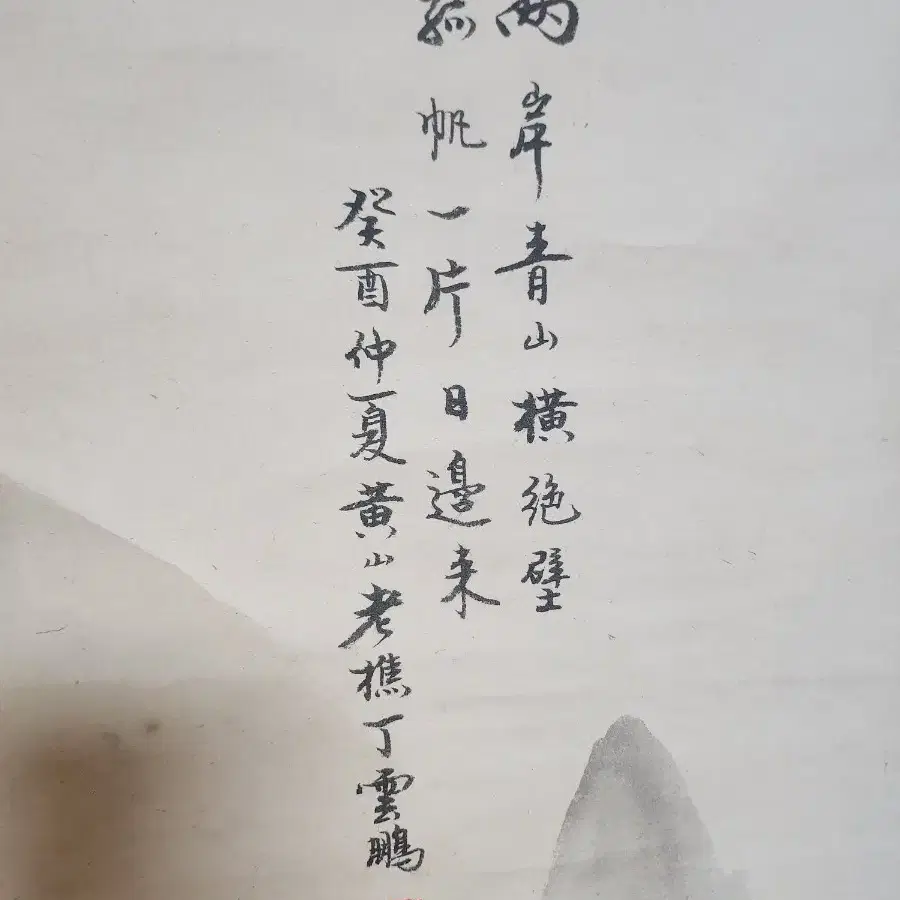 兩岸青山橫絶壁
孤帆一片日邊来
癸酉仲夏黃山老樵丁雲鵬